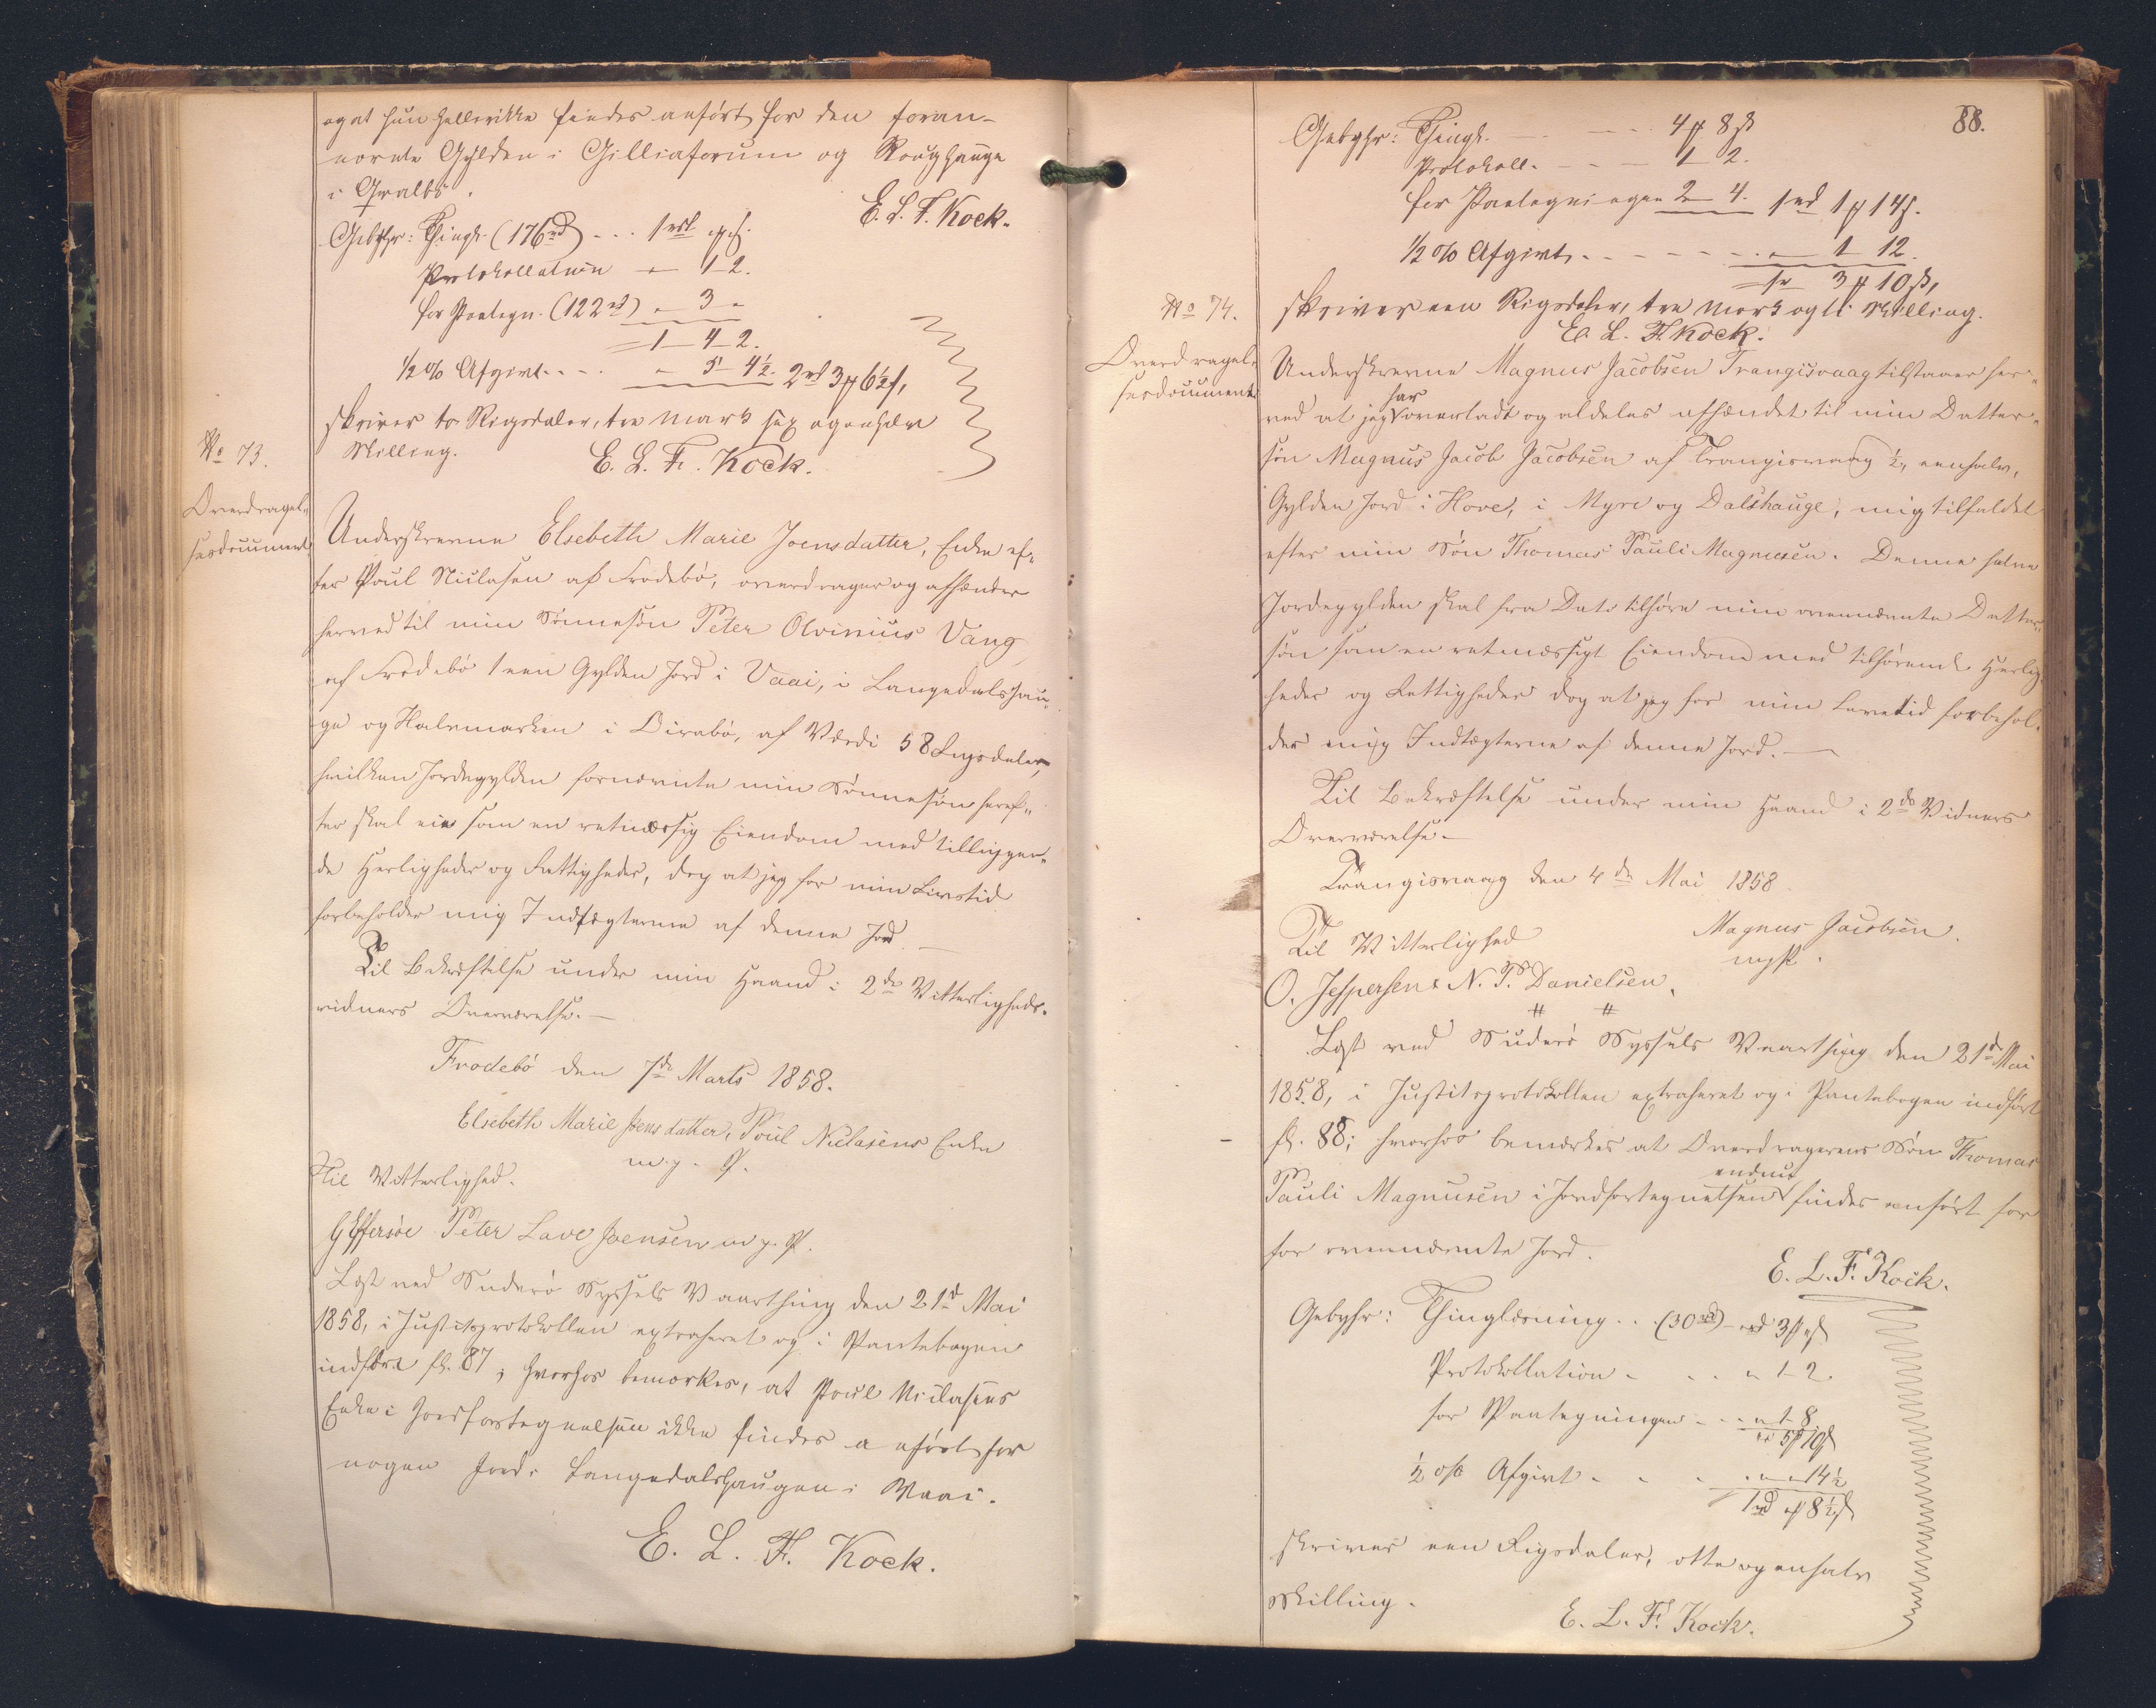 og at hun hellerikke findes anført for den foran-
nævnte Gylden i Gilliaforum og Roughauge
i Qvalbö.
E. L. F. Kock.
Gebyhr: Thingl. (176rd) - - - 1rd " "
Protokollation " 1 - 2.
for Paategn. (122rd) " 3 "
1 - 4 - 2.
½ % Afgivt - - - " 5 - 4½. 2rd 3 # 6½ s,
skriver to Rigsdaler, tre Mark sex og en halv
Skilling.
E. L. F. Kock.
No 73.
Overdragel-
sesdocument
Underskrevne Elsebeth Marie Joensdatter, Enke ef-
ter Poul Niclasen af Frodebö, overdrager og afhænder
herved til min Sønnesøn Peter Olvinius Vang
af Frodebö 1 een Gylden Jord i Vaai, i Langedalshau-
ge og Halvmarken i Dirabø, af Værdi 58 Rigsdaler,
hvilken Jordegylden fornævnte min Sønnesøn heref-
ter skal eie som en retmæssig Eiendom med tilliggen-
de Herligheder og Rettigheder, dog at jeg for min Livstid
forbeholder mig Indtægterne af denne Jord. —
Til Bekræftelse under min Haand i 2de Vitterligheds-
vidners Overværelse. —
Frodebö den 7de Marts 1858.
Elsebeth Marie Joensdatter, Poul Niclasens Enke
m. p. P.
Til Vitterlighed.
G Effersöe Peter Lave Joensen m. p. P.
Læst ved Suderö Syssels Vaarthing den 21d Mai
1858, i Justitsprotokollen extraheret og i Pantebogen
indført fl. 87; hvorhos bemærkes, at Poul Niclasens
Enke i Jordfortegnelsen ikke findes anført for
nogen Jord i Langedalshaugen i Waai.
E. L. F. Kock.
88.
Gebyhr: Thingl. - - - - 4 # 8 s
Protokoll. - - - 1 2.
for Paategningen 2 - 4. 1rd 1 # 14 s.
½ % Afgivt - - - - - - " 1 12.
1r 3 # 10 s,
skriver een Rigsdaler, tre Mark og ti Skilling.
E. L. F. Kock.
No 74.
Overdragel-
sesdocument
Underskrevne Magnus Jacobsen Trangisvaag tilstaaer her-
ved at jeg har overladt og aldeles afhændet til min Datter-
søn Magnus Jacob Jacobsen af Trangisvaag ½, eenhalv,
Gylden Jord i Hove, i Myre og Dalshauge, mig tilfaldet
efter min Søn Thomas Pauli Magnusen. Denne halve
Jordegylden skal fra Dato tilhøre min ovennævnte Datter-
søn som en retmæssigt Eiendom med tilhørende Herlig-
heder og Rettigheder dog at jeg for min Levetid forbehol-
der mig Indtægterne af denne Jord. —
Til Bekræftelse under min Haand i 2de Vidners
Overværelse. —
Trangisvaag den 4de Mai 1858
Magnus Jacobsen.
m. p. P.
Til Vitterlighed
O. Jespersen & N. P. Danielsen.
Læst ved Suderö Syssels Vaarthing den 21d Mai
1858, i Justitsprotokollen extraheret og i Pantebogen indført
fl. 88; hvorhos bemærkes at Overdragerens Søn Thomas
Pauli Magnusen i Jordfortegnelsen endnu findes anført for
for ovennævnte Jord.
E. L. F. Kock.
Gebyhr: Thinglæsning. . (30rd) - rd 3 # " s
Protokollation - - - " 1 - 2.
for Paategningen - - - " 1 - 8
rd 5 # 10 s
½ o/o Afgivt - - - - " - " - 14½
1rd " # 8½ s
skriver een Rigsdaler, otte og enhalv
Skilling.
E. L. F. Kock.